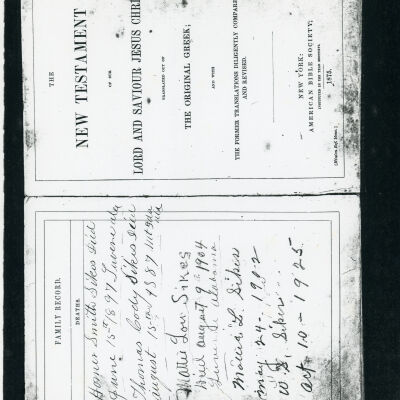 THE
NEW TESTAMENT
OF OUR
LORD AND SAVIOUR JESUS CHRI
TRANSLATED OUT OF
THE ORIGINAL GREEK;
AND WITH
THE FORMER TRANSLATIONS DILIGENTLY COMPARE
AND REVISED.
NEW YORK:
AMERICAN BIBLE SOCIETY,
INSTITUTED IN THE YEAR MDCCCXVI.
1873.
FAMILY RECORD.
DEATHS.
Homer Smith Sikes died
June 15th 1897
Thomas Cody Sikes died
august 15th 1897
Mattie Lou Sikes
Died august 9th 1904
Alabama
L. Sikes
may 24 - 1902
W. S. Sikes
oct 10 - 1925